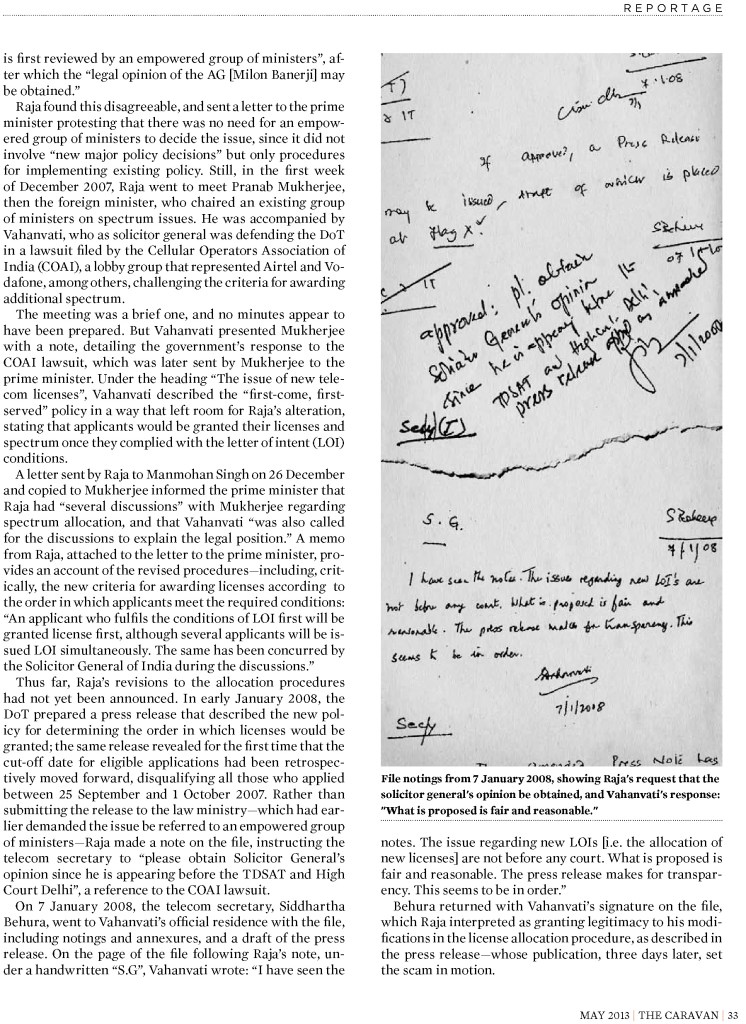 REPORTAGE
is first reviewed by an empowered group of ministers”, af-
ter which the “legal opinion of the AG [Milon Banerji] may
be obtained.”
Raja found this disagreeable, and sent a letter to the prime
minister protesting that there was no need for an empow-
ered group of ministers to decide the issue, since it did not
involve “new major policy decisions” but only procedures
for implementing existing policy. Still, in the first week
of December 2007, Raja went to meet Pranab Mukherjee,
then the foreign minister, who chaired an existing group
of ministers on spectrum issues. He was accompanied by
Vahanvati, who as solicitor general was defending the DoT
in a lawsuit filed by the Cellular Operators Association of
India (COAI), a lobby group that represented Airtel and Vo-
dafone, among others, challenging the criteria for awarding
additional spectrum.
The meeting was a brief one, and no minutes appear to
have been prepared. But Vahanvati presented Mukherjee
with a note, detailing the government’s response to the
COAI lawsuit, which was later sent by Mukherjee to the
prime minister. Under the heading “The issue of new tele-
com licenses”, Vahanvati described the “first-come, first-
served” policy in a way that left room for Raja’s alteration,
stating that applicants would be granted their licenses and
spectrum once they complied with the letter of intent (LOI)
conditions.
A letter sent by Raja to Manmohan Singh on 26 December
and copied to Mukherjee informed the prime minister that
Raja had “several discussions” with Mukherjee regarding
spectrum allocation, and that Vahanvati “was also called
for the discussions to explain the legal position.” A memo
from Raja, attached to the letter to the prime minister, pro-
vides an account of the revised procedures—including, crit-
ically, the new criteria for awarding licenses according to
the order in which applicants meet the required conditions:
“An applicant who fulfils the conditions of LOI first will be
granted license first, although several applicants will be is-
sued LOI simultaneously. The same has been concurred by
the Solicitor General of India during the discussions.”
Thus far, Raja’s revisions to the allocation procedures
had not yet been announced. In early January 2008, the
DoT prepared a press release that described the new pol-
icy for determining the order in which licenses would be
granted; the same release revealed for the first time that the
cut-off date for eligible applications had been retrospec-
tively moved forward, disqualifying all those who applied
between 25 September and 1 October 2007. Rather than
submitting the release to the law ministry—which had ear-
lier demanded the issue be referred to an empowered group
of ministers—Raja made a note on the file, instructing the
telecom secretary to “please obtain Solicitor General’s
opinion since he is appearing before the TDSAT and High
Court Delhi”, a reference to the COAI lawsuit.
On 7 January 2008, the telecom secretary, Siddhartha
Behura, went to Vahanvati’s official residence with the file,
including notings and annexures, and a draft of the press
release. On the page of the file following Raja’s note, un-
der a handwritten “S.G”, Vahanvati wrote: “I have seen the
7.1.08
& IT
If approved, a Press Release
may be issued, draft of which is placed
at Flag X.
& IT
approved: pl. obtain
Solicitor General's opinion
since he is appearing before the
TDSAT and High Court Delhi.
press release appd as amended
7/1/2008
Secy (T)
S. G.
7/1/08
I have seen the notes. The issue regarding new LOI's are
not before any court. What is proposed is fair and
reasonable. The press release makes for transparency. This
seems to be in order.
7/1/2008
Secy
Press Note has
File notings from 7 January 2008, showing Raja’s request that the
solicitor general’s opinion be obtained, and Vahanvati’s response:
"What is proposed is fair and reasonable."
notes. The issue regarding new LOIs [i.e. the allocation of
new licenses] are not before any court. What is proposed is
fair and reasonable. The press release makes for transpar-
ency. This seems to be in order.”
Behura returned with Vahanvati’s signature on the file,
which Raja interpreted as granting legitimacy to his modi-
fications in the license allocation procedure, as described in
the press release—whose publication, three days later, set
the scam in motion.
MAY 2013 | THE CARAVAN | 33